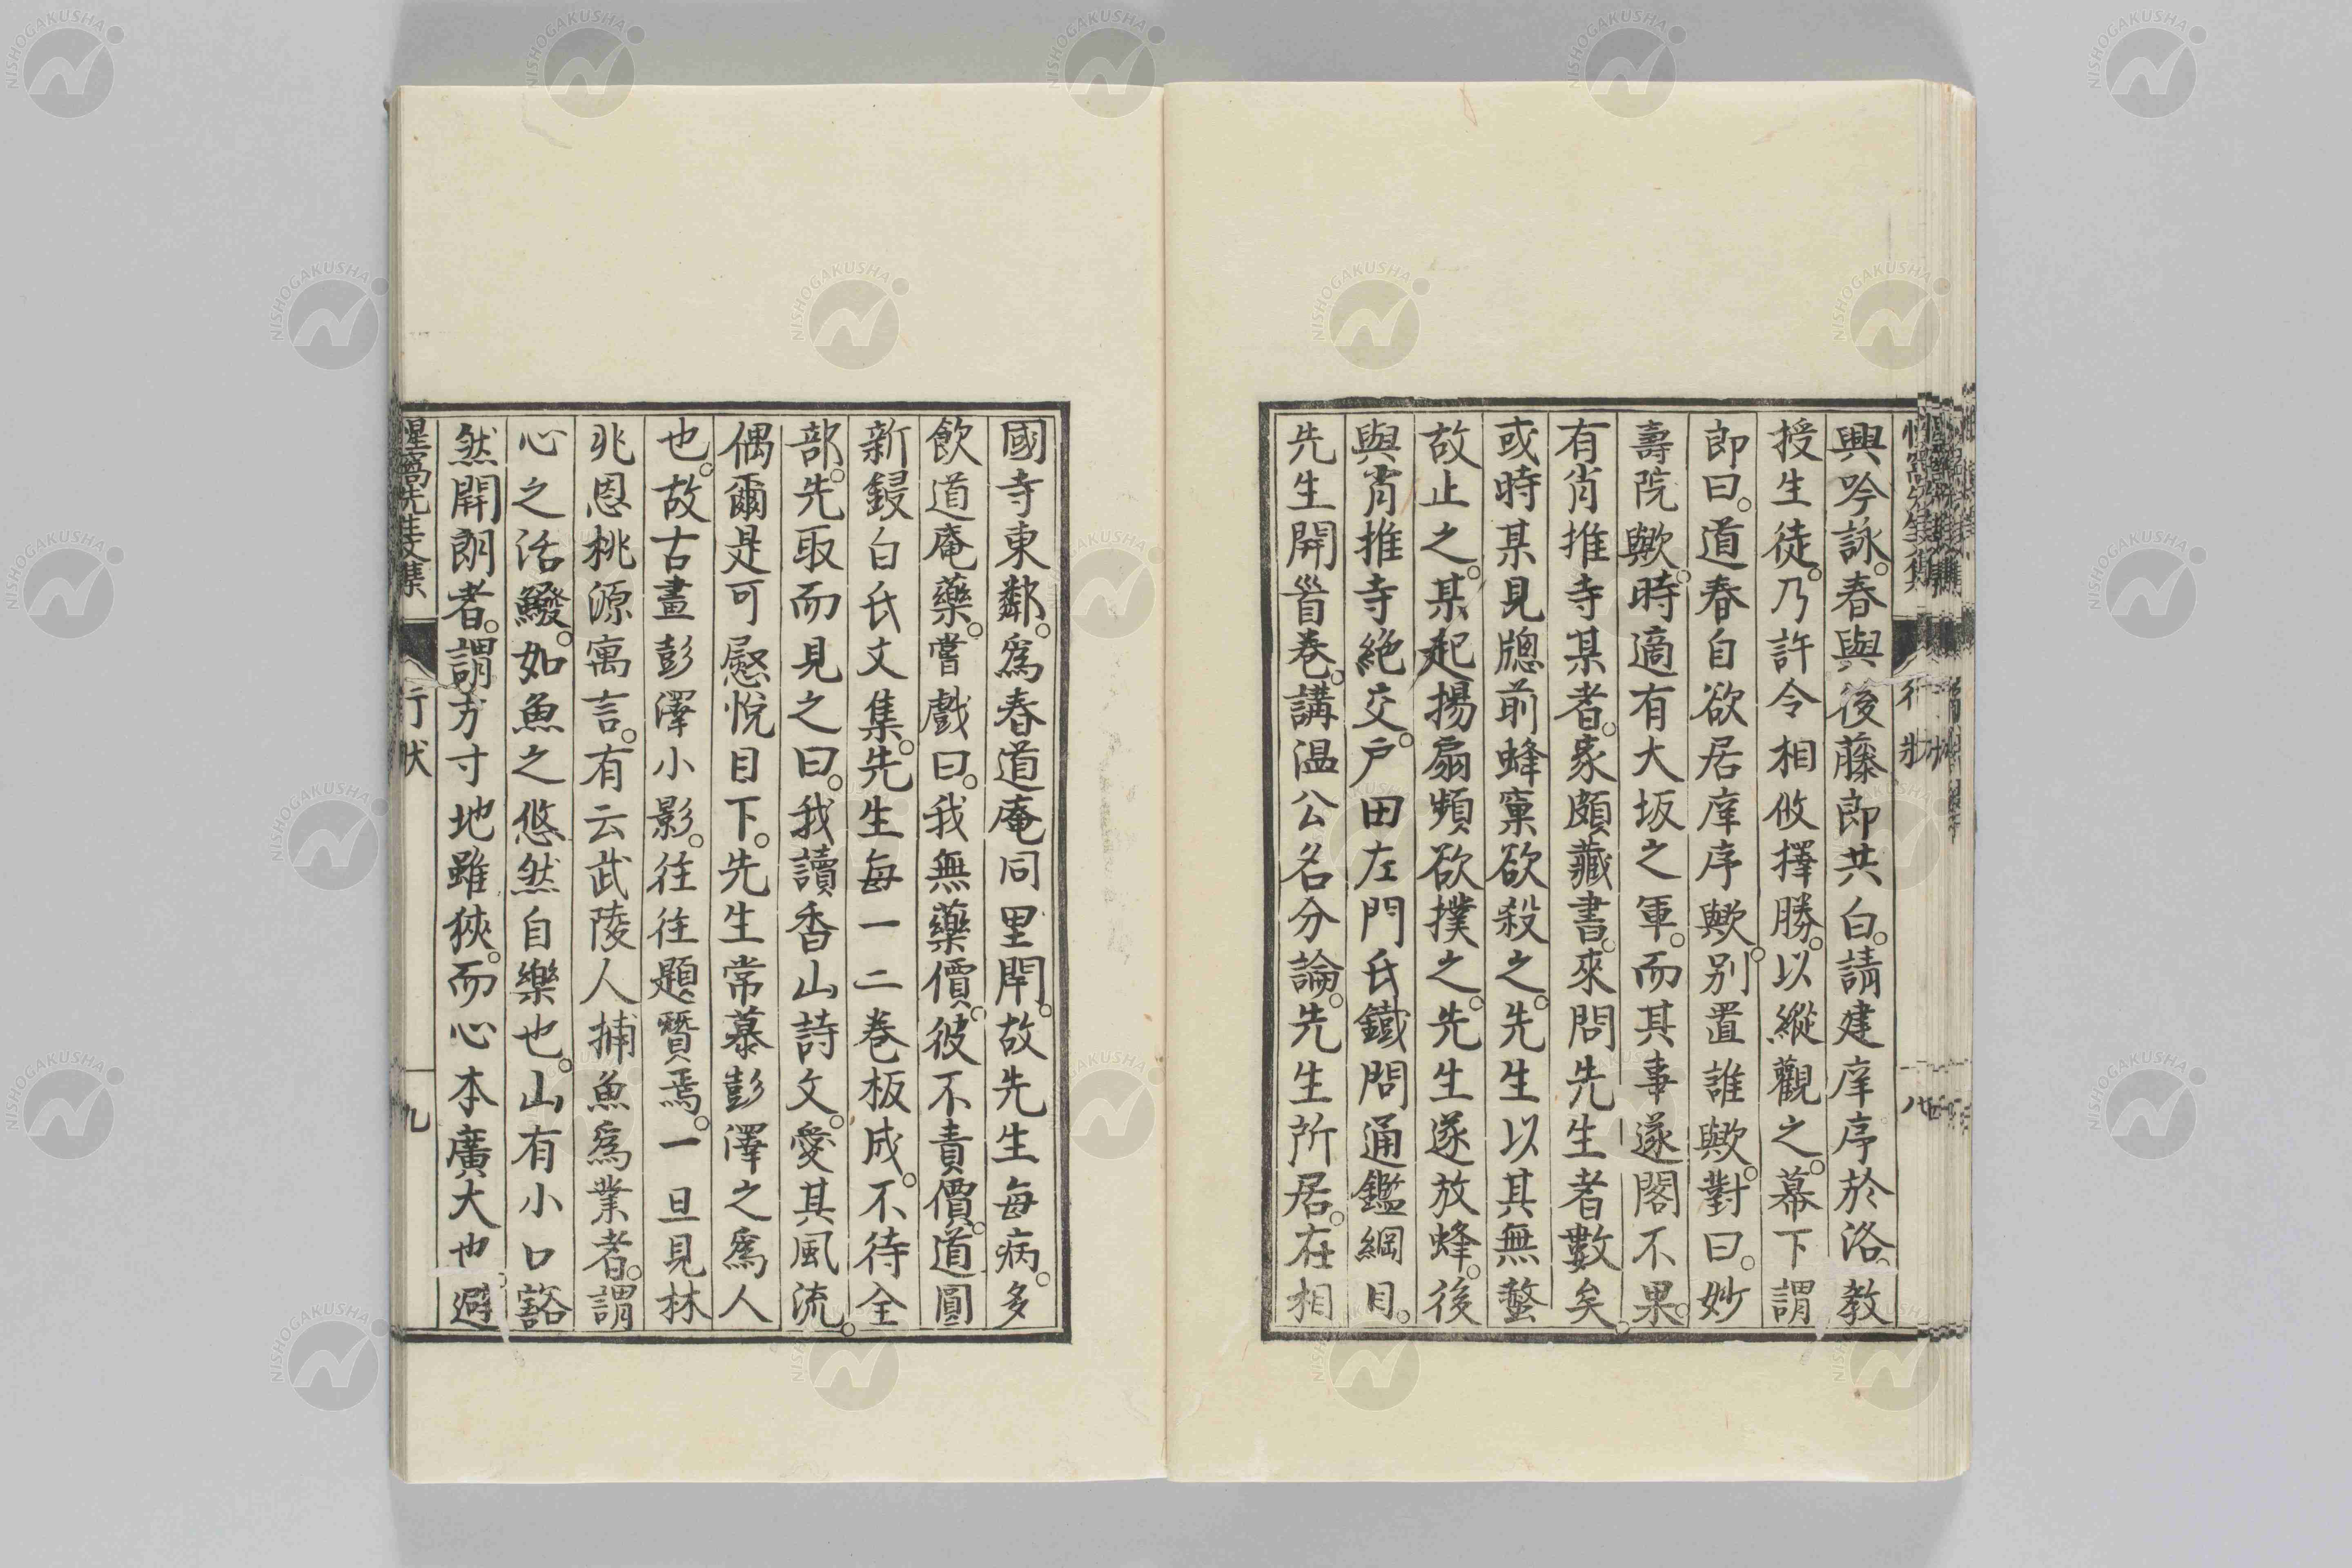 興吟詠。春與後藤郎共白。請建庠序於洛。教
授生徒。乃許令相攸擇勝。以縱觀之。幕下謂
郎曰。道春自欲居庠序歟。别置誰歟。對曰。妙
壽院歟。時適有大坂之軍。而其事遂閣不果。
有肖推寺某者。家頗藏書。來問先生者數矣。
或時某見牕前蜂窠欲殺之。先生以其無螫
故止之。某起揚扇頻欲撲之。先生遂放蜂。後
與肖推寺絶交。戶田左門氏鐵問通鑑綱目。
先生開首卷。講温公名分論。先生所居。在相
國寺東鄰。爲春道庵同里閈。故先生每病。多
飲道庵藥。嘗戲曰。我無藥價。彼不責價。道圓
新鋟白氏文集。先生每一二卷板成。不待全
部。先取而見之曰。我讀香山詩文。愛其風流。
偶爾是可慰悅目下。先生常慕彭澤之爲人
也。故古畫彭澤小影。往往題贊焉。一旦見林
兆恩桃源寓言。有云武陵人捕魚爲業者。謂
心之活鱍。如魚之悠然自樂也。山有小口豁
然開朗者。謂方寸地雖狹。而心本廣大也避
惺窩先生文集 行狀 九